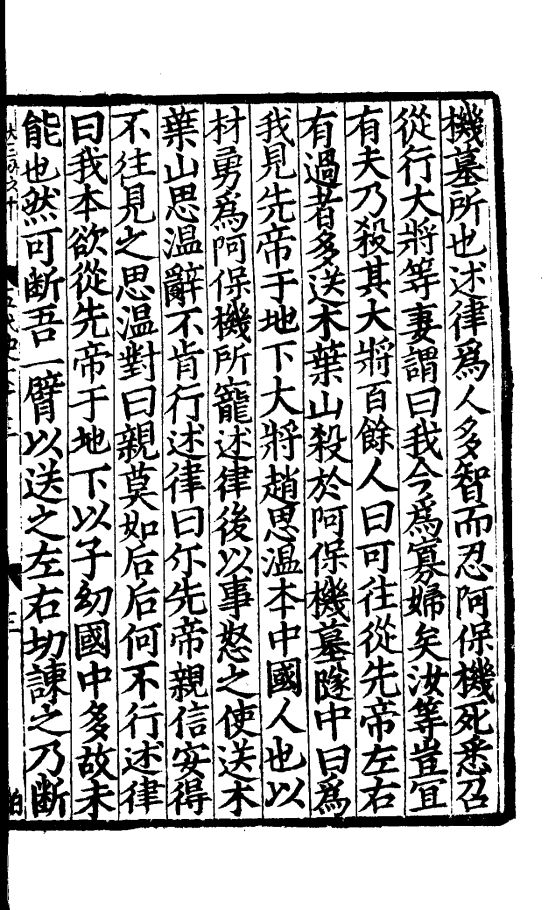 機墓所也述律爲人多智而忍阿保機死悉召
從行大將等妻謂曰我今爲寡婦矣汝等豈宜
有夫乃殺其大將百餘人曰可往從先帝左右
有過者多送木葉山殺於阿保機墓隧中曰爲
我見先帝于地下大將趙思温本中國人也以
材勇爲阿保機所寵述律後以事怒之使送木
葉山思温辭不肯行述律曰尓先帝親信安得
不往見之思温對曰親莫如后后何不行述律
曰我本欲從先帝于地下以子幼國中多故未
能也然可斷吾一臂以送之左右切諫之乃斷